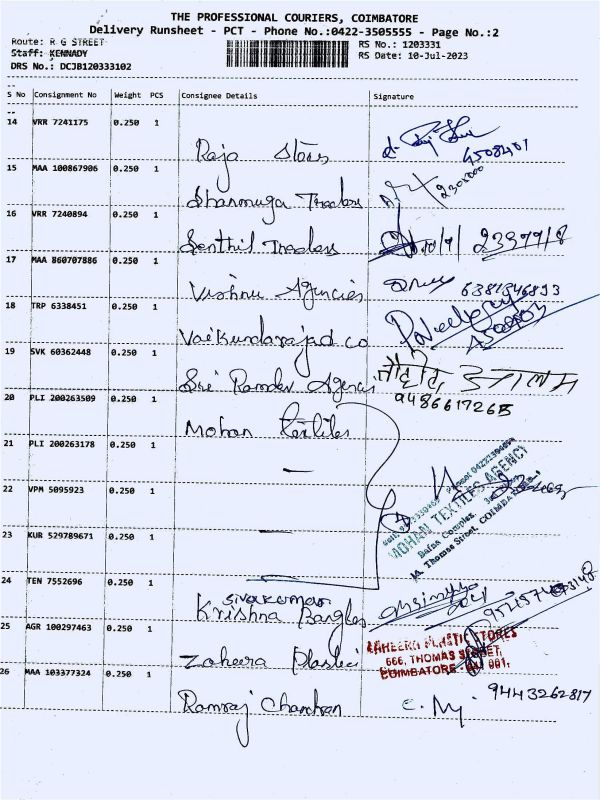 THE PROFESSIONAL COURIERS, COIMBATORE
Delivery Runsheet - PCT - Phone No.:0422-3505555 - Page No.:2
Route: R G STREET RS No.: 1203331
Staff: KENNADY RS Date: 10-Jul-2023
DRS No.: DCJB120333102
S No Consignment No Weight PCS Consignee Details Signature
14 VRR 7241175 0.250 1
Raja Stores
15 MAA 100867906 0.250 1
Shanmuga Traders
16 VRR 7240894 0.250 1
Senthil Traders
17 MAA 860707886 0.250 1
Vishnu Agencies
18 TRP 6338451 0.250 1
Vaikundaraja d co
19 SVK 60362448 0.250 1
Sri Ramdev Agencies
9486617265
20 PLI 200263509 0.250 1
Mohan textiles
21 PLI 200263178 0.250 1
22 VPM 5095923 0.250 1
MOHAN TEXTILES AGENCY
Thomas Street, COIMBATORE
23 KUR 529789671 0.250 1
24 TEN 7552696 0.250 1
Sivakumar
Krishna Bangles
25 AGR 100297463 0.250 1
Zaheera Plastic
ZAHEERA PLASTIC STORES
666, THOMAS STREET,
COIMBATORE - 641 001.
26 MAA 103377324 0.250 1
Ramraj Chandran
9443262817